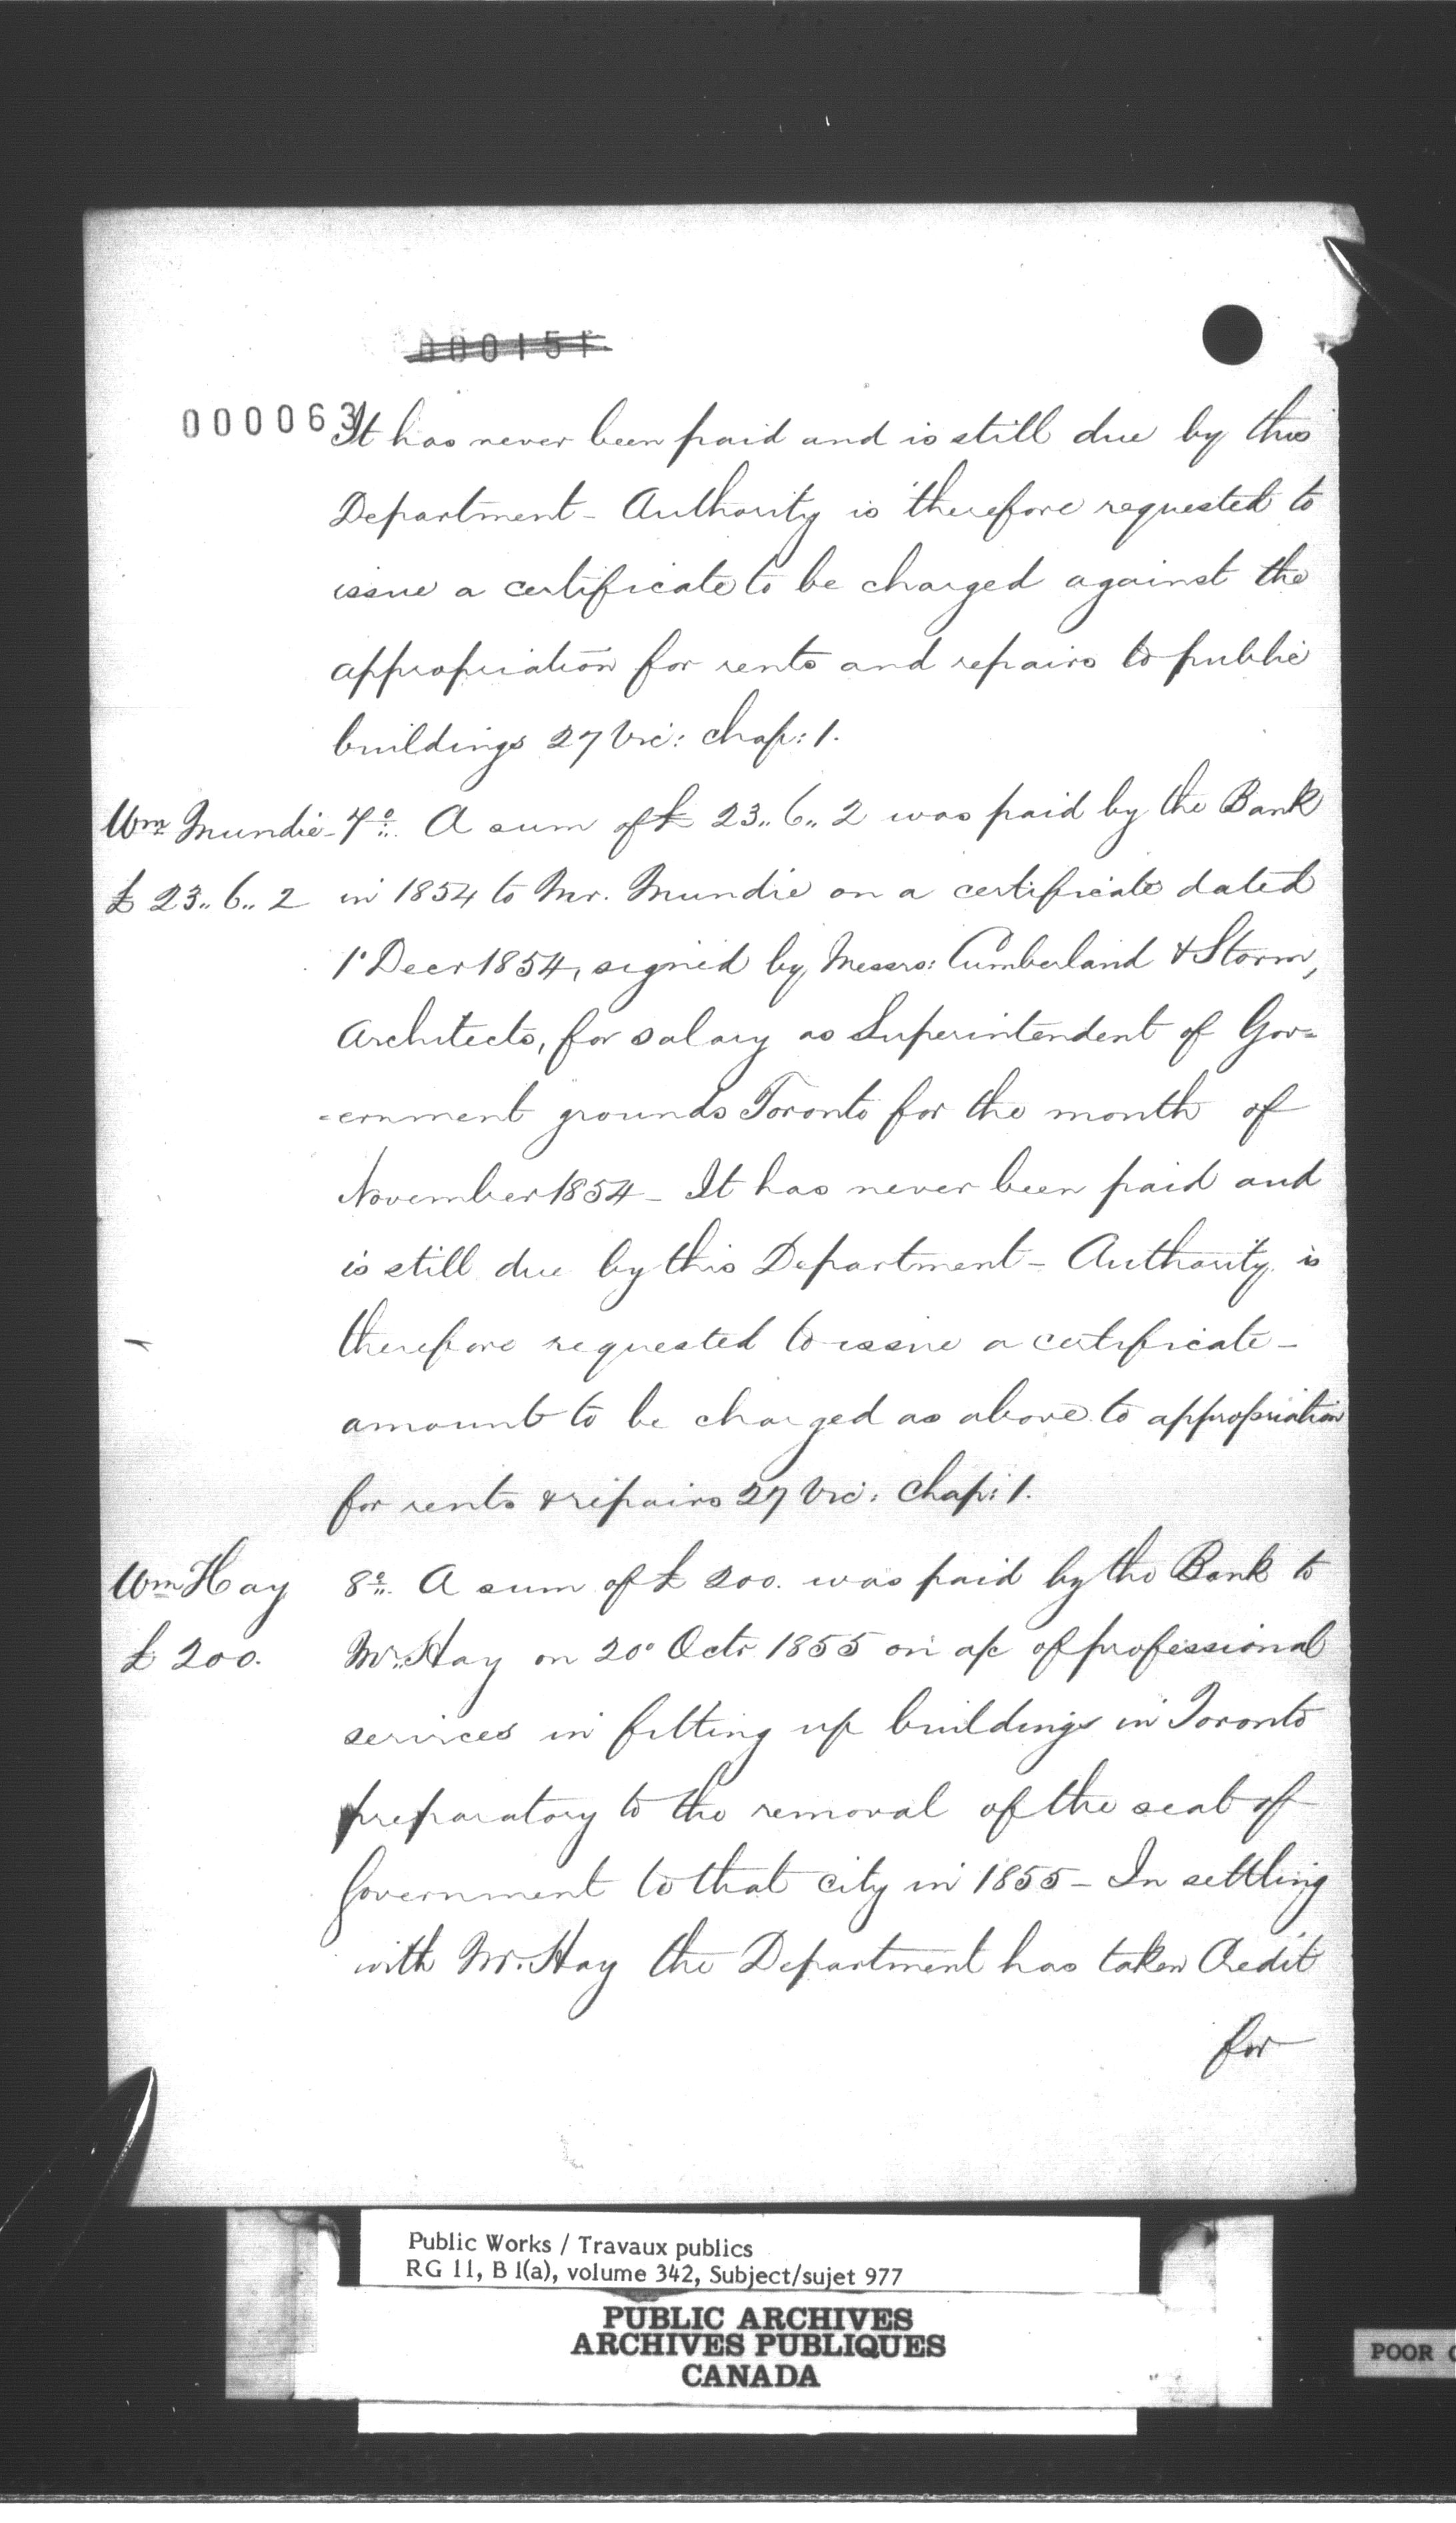 000151
000063
It has never been paid and is still due by this
Department - Authority is therefore requested to
issue a certificate to be charged against the
appropriation for rents and repairs to public
buildings 27 Vic: chap: 1.
Wm Mundie - 7o. A sum of £ 23.. 6.. 2 was paid by the Bank
£ 23.. 6.. 2 in 1854 to Mr. Mundie on a certificate dated
1o Decr 1854, signed by Messrs: Cumberland & Storm,
Architects, for salary as Superintendent of Gov=
=ernment grounds Toronto for the month of
November 1854 - It has never been paid and
is still due by this Department - Authority is
therefore requested to issue a certificate -
amount to be charged as above to appropriation
for rents & repairs 27 Vic: Chap: 1.
Wm Hay 8o. A sum of £ 200. was paid by the Bank to
£ 200. Mr. Hay on 20o Octr 1855 on a/c of professional
services in fitting up buildings in Toronto
preparatory to the removal of the seat of
Government to that city in 1855 - In settling
with Mr. Hay the Department has taken Credit
for
Public Works / Travaux publics
RG 11, B 1(a), volume 342, Subject/sujet 977
PUBLIC ARCHIVES
ARCHIVES PUBLIQUES
CANADA
POOR